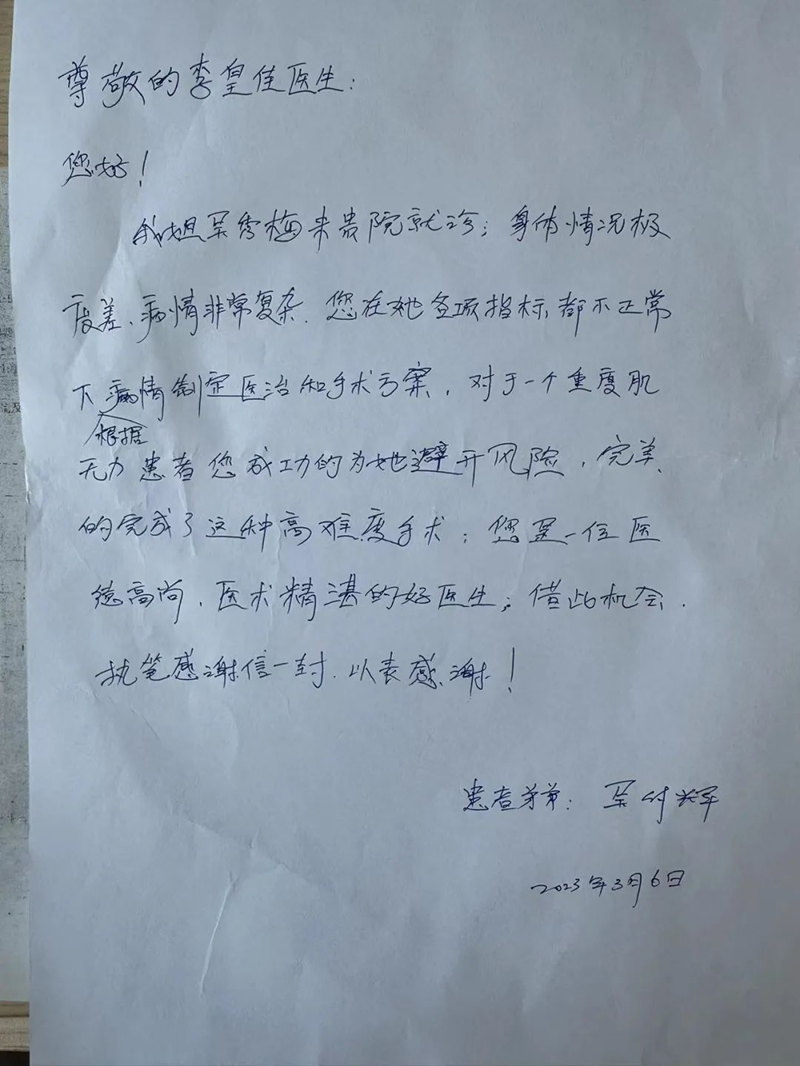 尊敬的李皇佳医生：
您好！
我姐吴秀梅来贵院就诊；身体情况极
度差、病情非常复杂．您在她各项指标都不正常
下根据病情制定医治和手术方案，对于一个重度肌
无力患者您成功的为她避开风险，完美
的完成了这种高难度手术；您是一位医
德高尚，医术精湛的好医生；借此机会．
执笔感谢信一封．以表感谢！
患者弟弟：吴付辉
2023年3月6日